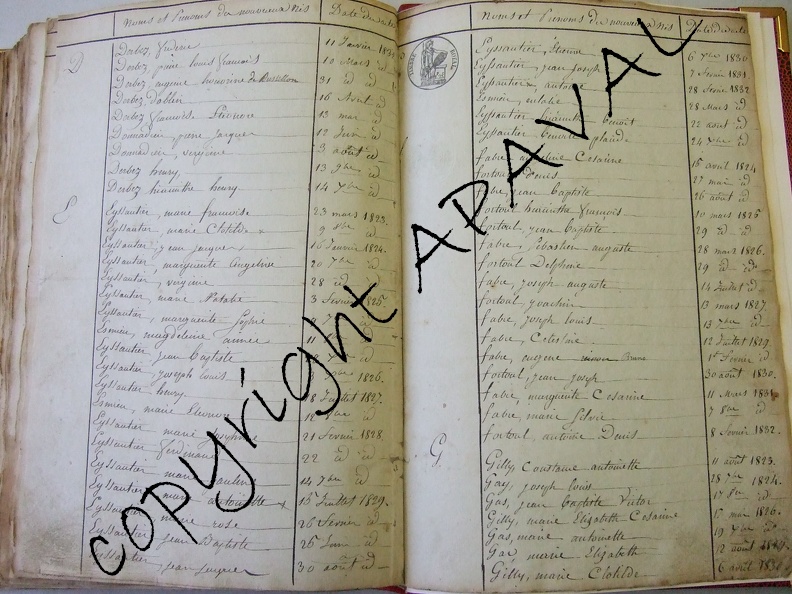 Noms et Prénoms du nouveaux Nés Date des actes
D
Derbez, 11 Janvier
Derbez, pierre louis françois 10 Mars id
Derbez eugene honorine de Bussillon 31 id id
Derbez 16 Avril id
Derbez françoise Eleonore 13 mai id
Donnadieu pierre jacques 12 Juin id
Donnadieu, virginie 3 août id
Derbez henry, 13 9bre id
Derbez hiacinthe henry 14 Xbre id
E
Eyssautier, marie françoise 23 mars 1823.
Eyssautier, marie Clotilde 9 8bre id
Eyssautier, jean jacques 16 fevrier 1824.
Eyssautier, marguerite Angeline 20 7bre id
Eyssautier, virginie 28 id id
Eyssautier, marie 3 fevrier 1825.
Eyssautier, marguerite Sophie
Esmieu, magdeleine aimée 11
Eyssautier jean Baptiste
Eyssautier, joseph louis 1826.
Eyssautier henry 8 Juillet 1827.
Esmieu, marie Eleonore 12
Eyssautier marie 21 fevrier 1828
Eyssautier ferdinand 22 id id
Eyssautier marie 14 7bre id
Eyssautier marie antoinette 15 Juillet 1829.
marie rose 26 fevrier id
jean Baptiste 25 Juin id
jean jacques 30 août id
Noms et Prénoms du nouveaux Nés Date des actes
TIMBRE ROYAL
Eyssautier, Etienne 6 Xbre 1830
Eyssautier, jean joseph 7 fevrier 1831
Eyssautier, antoine 28 fevrier 1832
Esmieu, eulalie 28 Mars id
Eyssautier hiacinthe benoit 22 août id
Eyssautier 24 Xbre id
fabre, Cesarine 15 avril 1824
fortoul Denis 27 mai id
fabre, jean baptiste 26 août id
fortoul hiacinthe françois 10 mars 1825
fortoul, jean baptiste 29 id id
fabre, Sébastien auguste 28 mars 1826.
fortoul Delphine 29 id id
fabre, joseph auguste 14 Juillet id
fortoul joachim 13 mars 1827
fabre, joseph louis 13 7bre id
fabre, Celestine 12 Juillet 1829.
fabre, eugene 1er fevrier id
fortoul, jean joseph 30 août 1830.
fabre, marguerite Cesarine 11 Mars 1831
fabre, marie Silvie 7 8bre id
fortoul, antoine Denis 8 fevrier 1832.
G
Gilly, Constance antoinette 11 août 1823.
Gay, joseph louis 28 Xbre 1824.
Gas, jean baptiste Victor 17 8bre id
Gilly, marie Elizabeth Cesarine 15 mai 1826.
Gas, marie antoinette 19 Xbre id
Gas, marie Elizabeth 12 août
Gilly, marie Clotilde 6 avril 183
copyright APAVAL